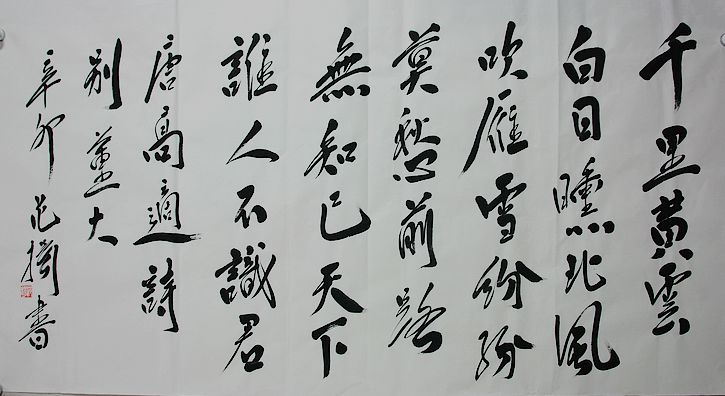 千里黄雲
白日曛北風
吹雁雪紛紛
莫愁前路
無知己天下
誰人不識君
唐高適詩
别董大
辛卯范書